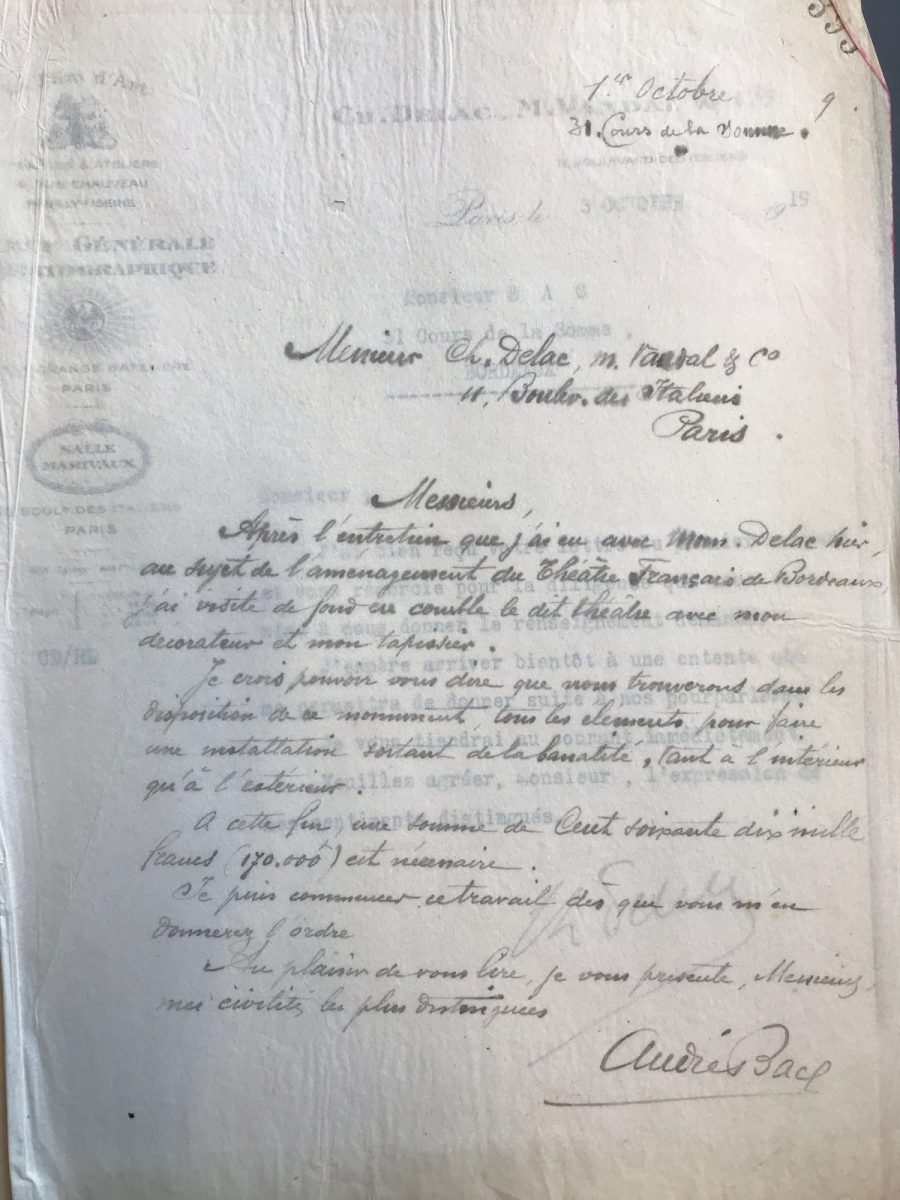 333
1er Octobre 9.
31. Cours de la Somme.
Film d'Art
CH. DELAC, M. VANDAL
& ATELIERS
CHAUVEAU
BOULEVARD DES ITALIENS
Paris, le 3 OCTOBRE 1919
GÉNÉRALE
CINÉMATOGRAPHIQUE
Monsieur B A C
31 Cours de la Somme,
BORDEAUX
GRANGE BATELIÈRE
PARIS
Messieurs Ch. Delac, M. Vandal & Co
11, Boulev. des Italiens
Paris.
SALLE
MARIVAUX
BOULD DES ITALIENS
PARIS
Monsieur,
Messieurs,
Après l'entretien que j'ai eu avec Mons. Delac hier,
au sujet de l'aménagement du Théâtre Français de Bordeaux,
j'ai visité de fond en comble le dit théâtre avec mon
décorateur et mon tapissier.
Je crois pouvoir vous dire que nous trouverons dans les
disposition de ce monument, tous les elements pour faire
une installation sortant de la banalité, tant à l'intérieur
qu'à l'extérieur.
A cette fin, une somme de Cent soixante dix mille
francs (170.000) est nécessaire.
Je puis commencer ce travail dès que vous m'en
donnerez l'ordre
Au plaisir de vous lire, je vous presente, Messieurs,
mes civilités les plus distinguées
André Bac
bien reçu votre lettre
donner le renseignement
J'espère arriver bientôt à une entente
me permettre de donner suite à nos pourparlers
vous tiendrai au courant immédiatement.
Veuillez agréer, Monsieur, l'expression de
sentiments distingués.